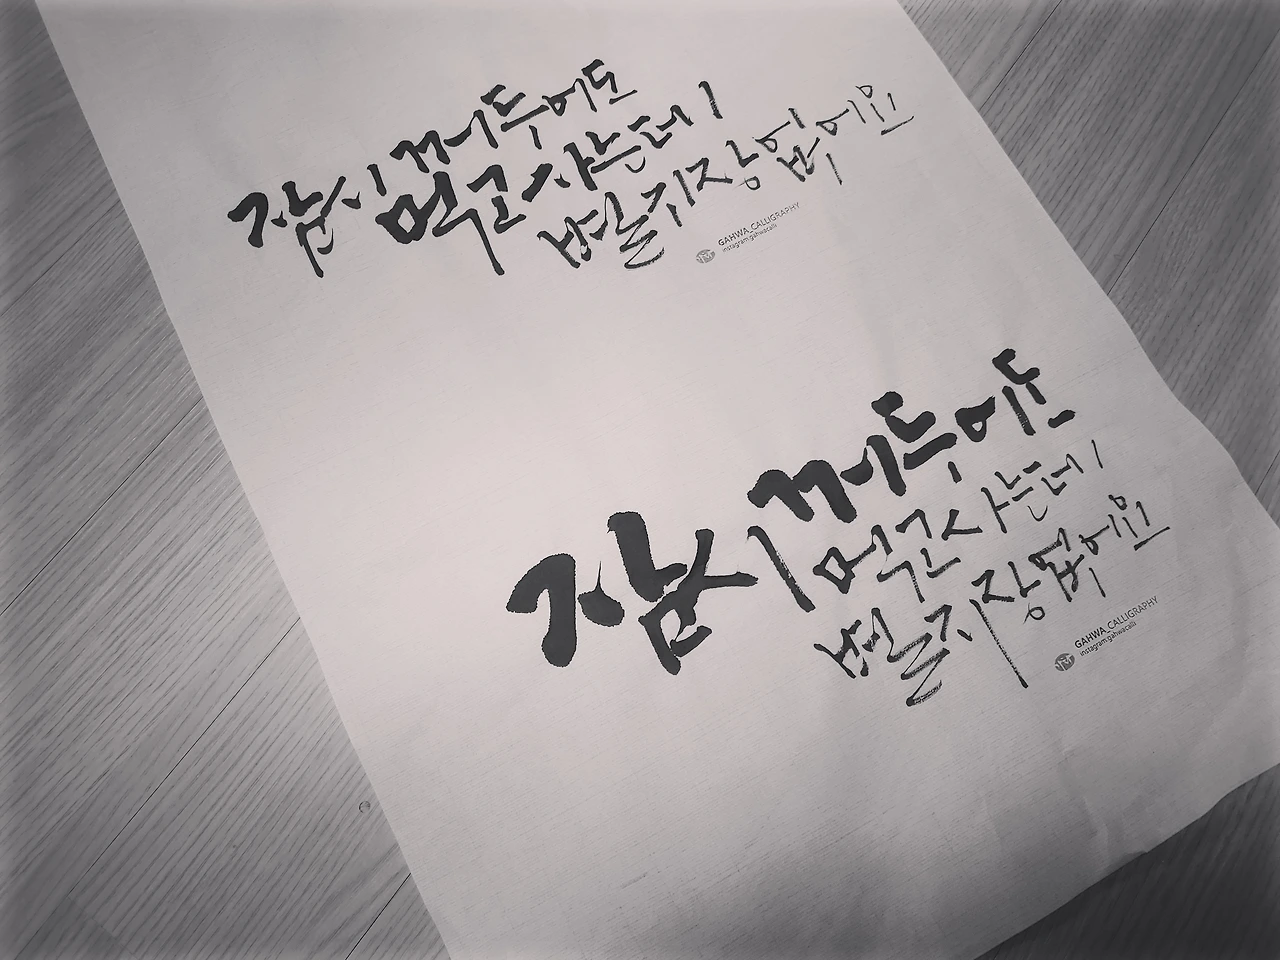 잠시 꺼두어도
먹고 사는데
별 지장 없어요
GAHWA_CALLIGRAPHY
instagram.gahwacalli
잠시 꺼두어도
먹고 사는데
별 지장 없어요
GAHWA_CALLIGRAPHY
instagram.gahwacalli